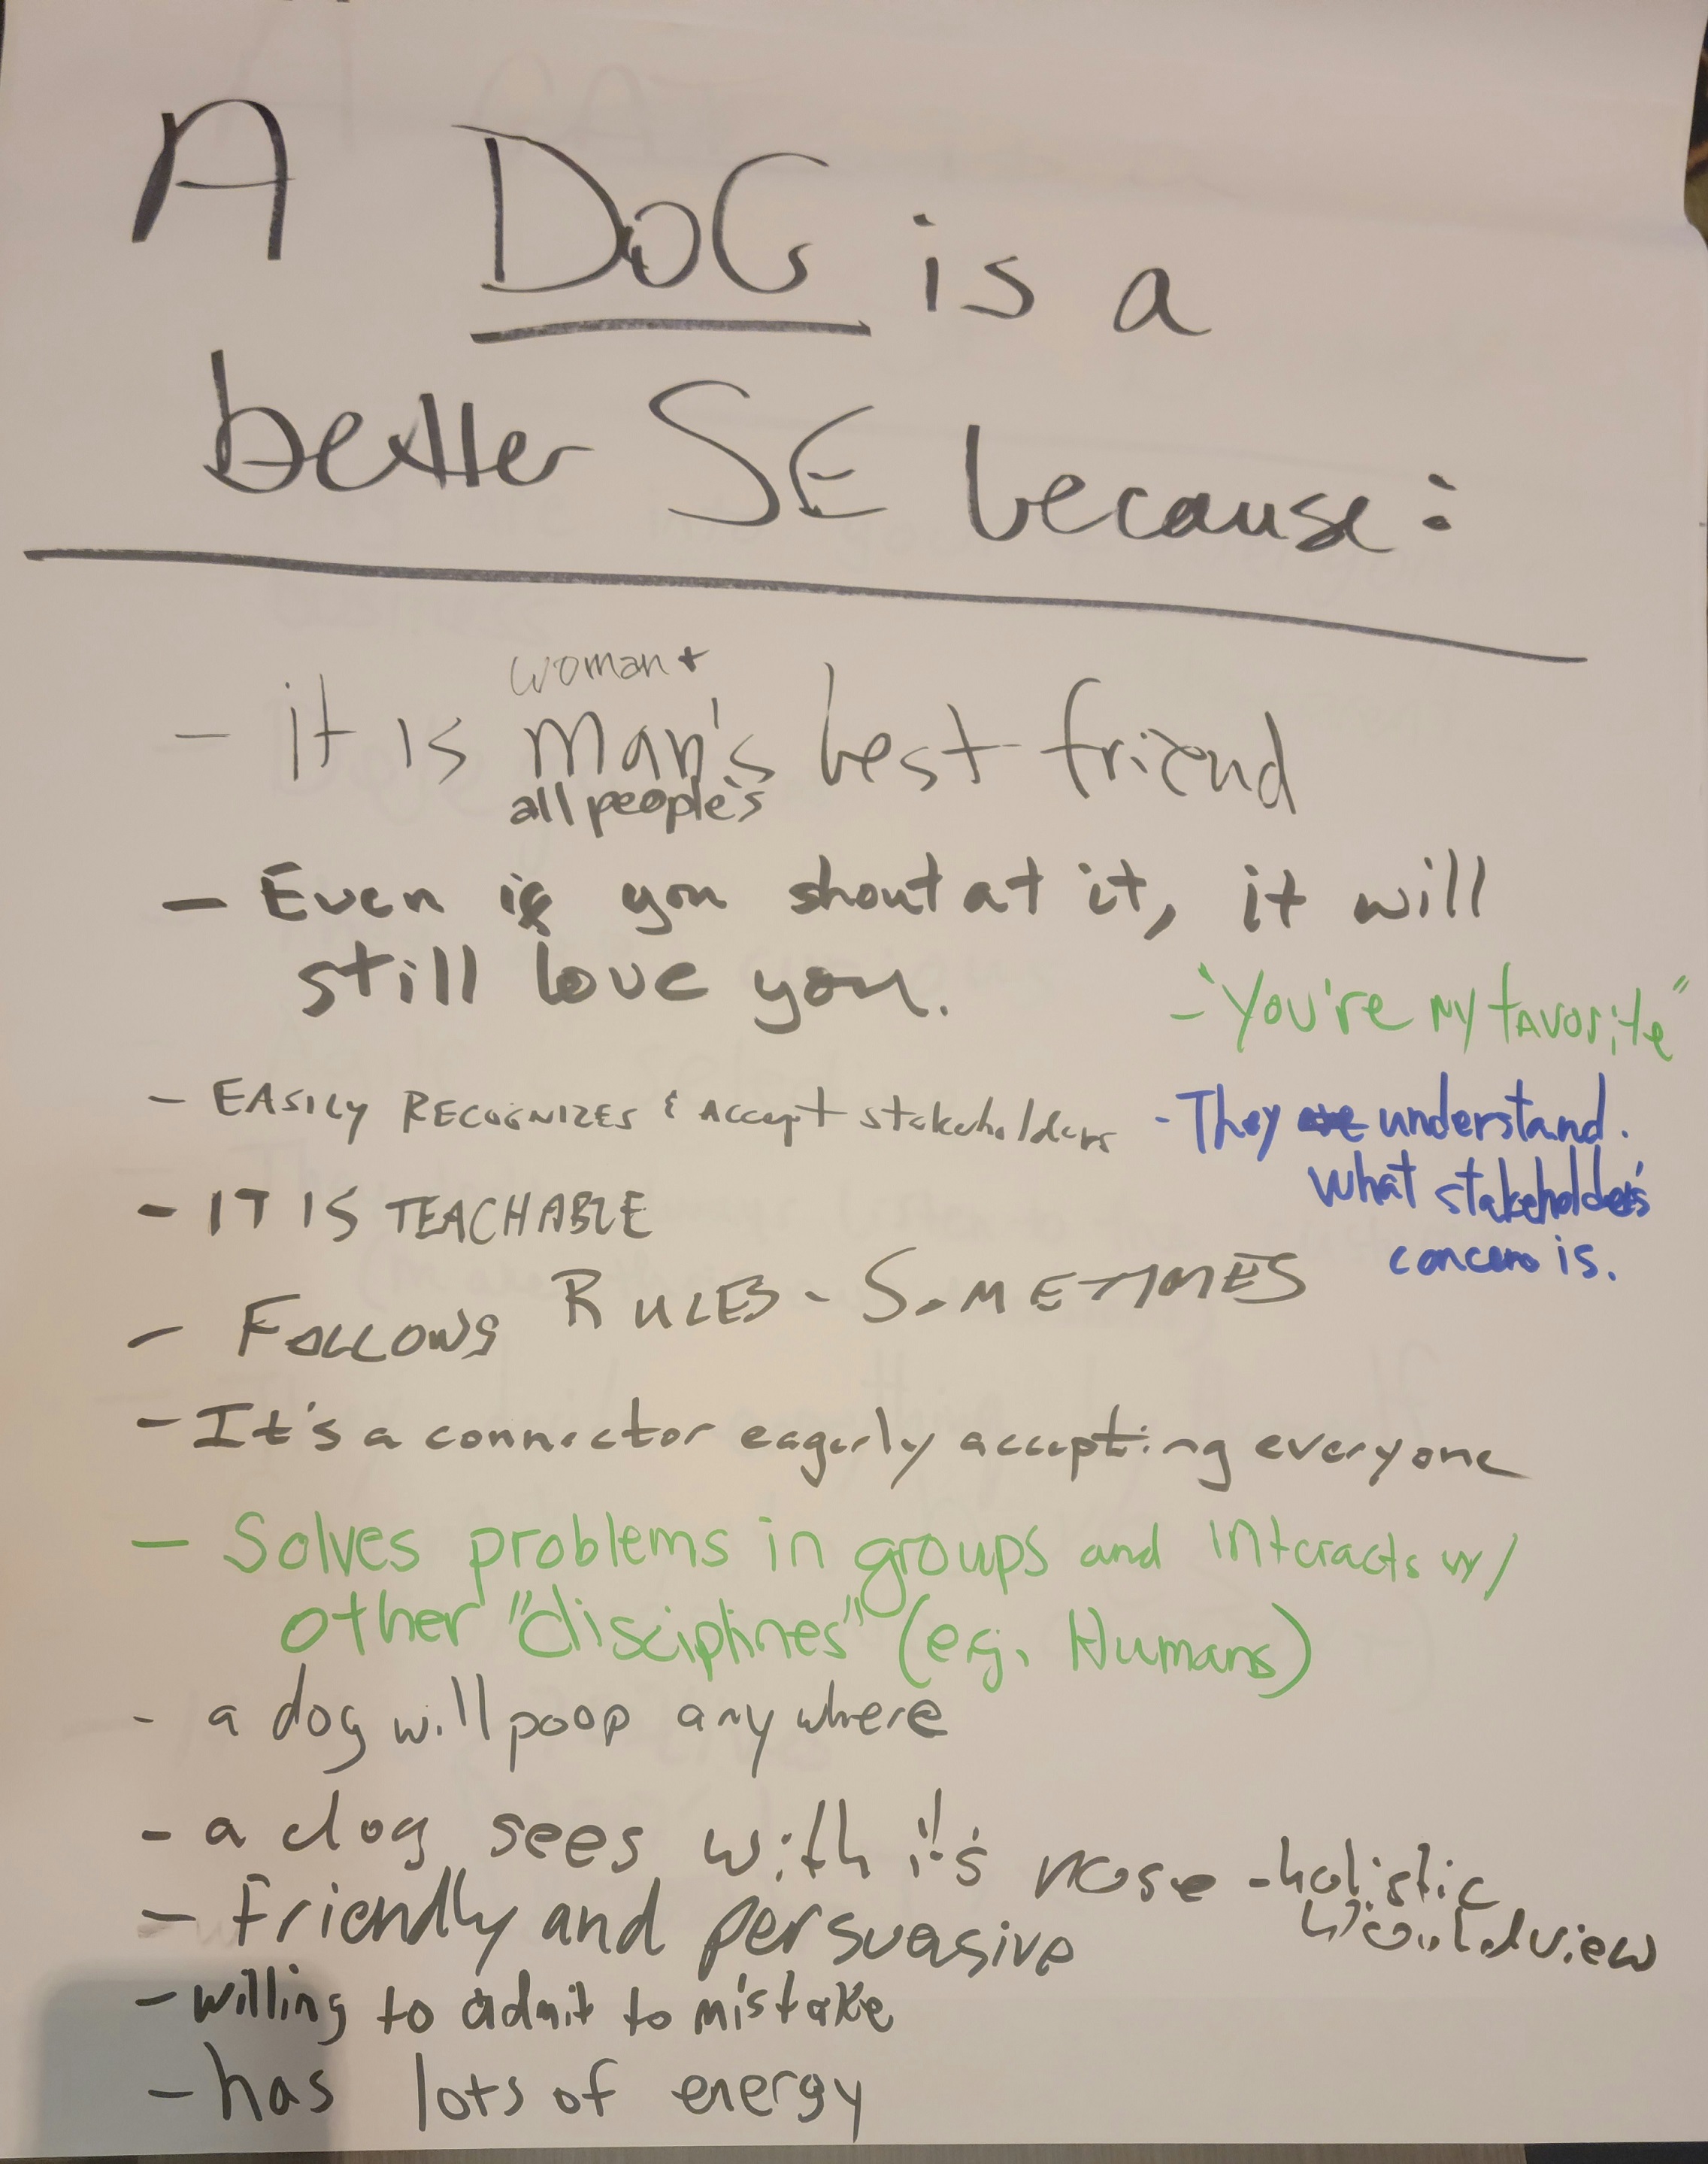 A DOG is a
better SE because:
woman +
- it is man's best friend
all people's
- Even if you shout at it, it will
still love you.
- "You're my favorite"
- EASILY RECOGNIZES & Accept stakeholders
- They understand.
what stakeholder's
concern is.
- IT IS TEACHABLE
- FOLLOWS RULES - SOMETIMES
- It's a connector eagerly accepting everyone
- Solves problems in groups and interacts w/
other "disciplines" (e.g. Humans)
- a dog will poop anywhere
- a dog sees with it's nose - holistic
worldview
- Friendly and persuasive
- willing to admit to mistake
- has lots of energy